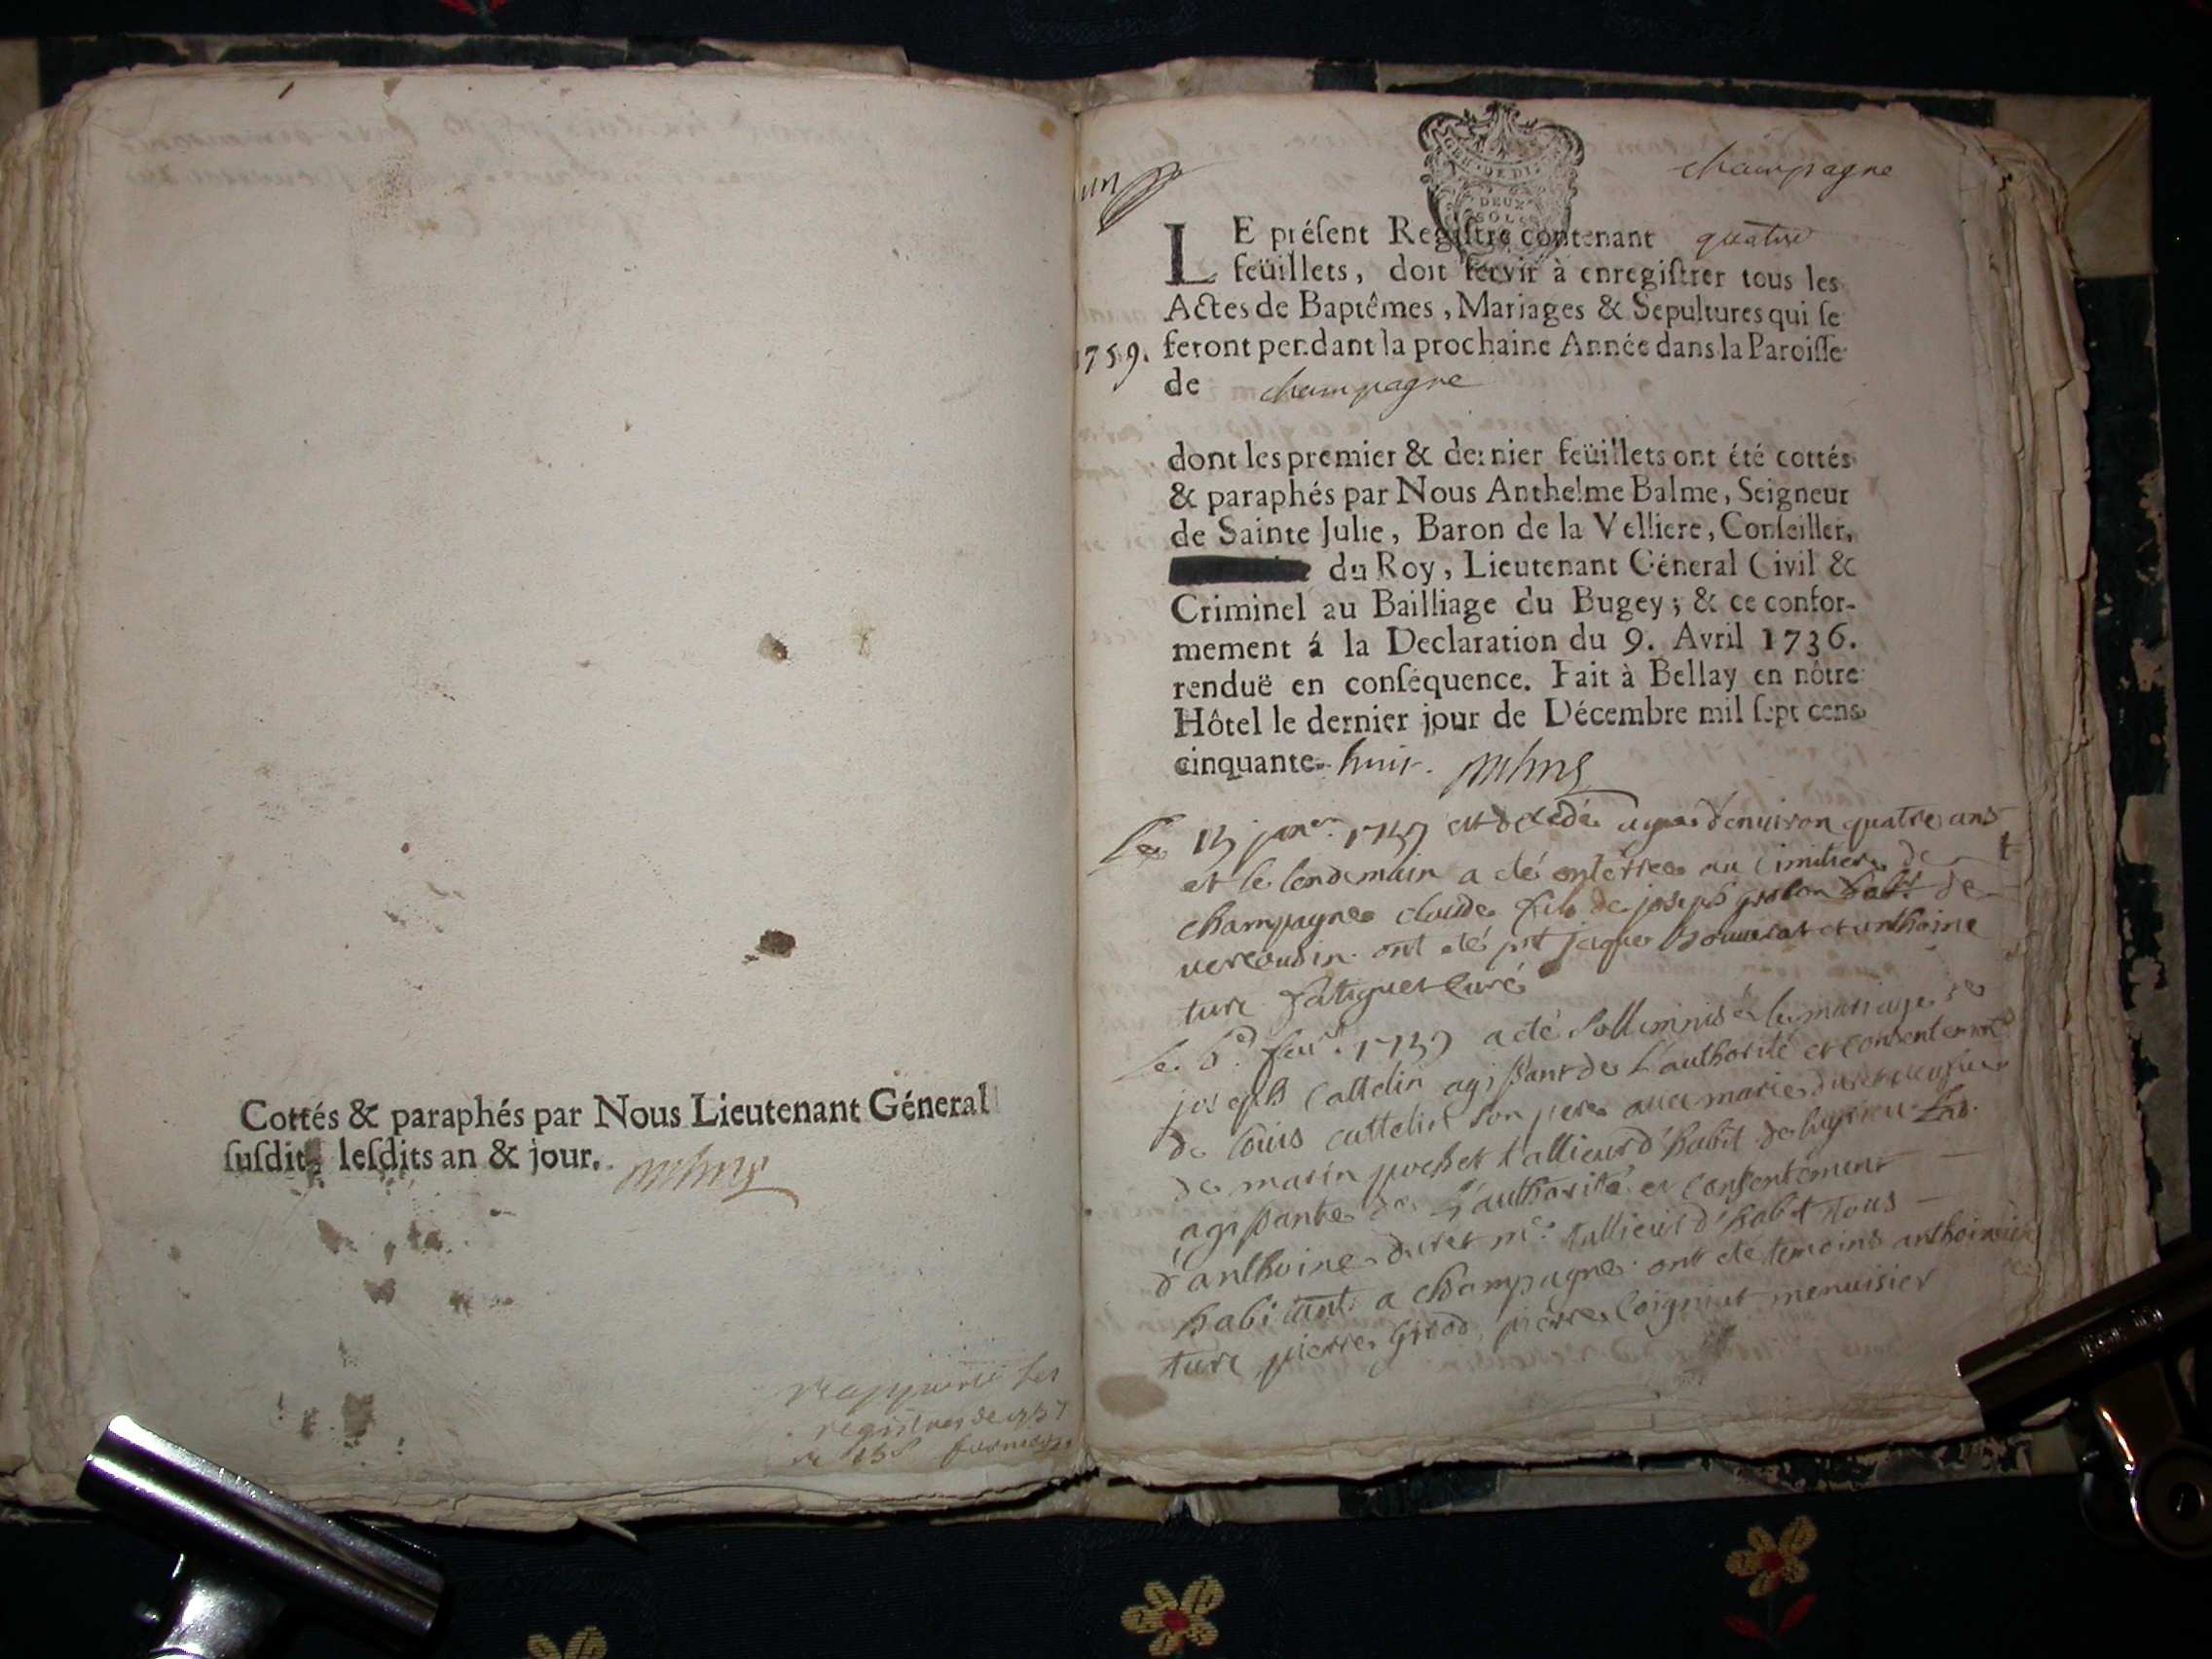 Cottés & paraphés par Nous Lieutenant Géneral
susdit, lesdits an & jour.
registres de 1757
un
champagne
GEN. DE DI
DEUX
SOLS
LE présent Registre contenant quatre
feüillets, doit servir à enregistrer tous les
Actes de Baptêmes, Mariages & Sepultures qui se
1759. feront pendant la prochaine Année dans la Paroisse
de champagne
dont les premier & dernier feüillets ont été cottés
& paraphés par Nous Anthelme Balme, Seigneur
de Sainte Julie, Baron de la Velliere, Conseiller,
du Roy, Lieutenant Géneral Civil &
Criminel au Bailliage du Bugey; & ce confor-
mement á la Declaration du 9. Avril 1736.
renduë en conséquence. Fait à Bellay en nôtre
Hôtel le dernier jour de Décembre mil sept cens
cinquante- huit.
Le janer 1759 est decedé agé d'environ quatre ans
et le lendemain a eté enterré au cimitiere de
champagne claude fils de joseph habt de
vercoudin ont eté pnt jaques et anthoine
ture fatiguet curé
le 1759 a eté sollemnisé le mariage de
joseph cattelin agissant de L'authorité et consentement
de louis cattelin son pere avec marie duret veufve
de marin pochet tallieur d'habit de
agissante de L'authorité et consentement
d'anthoine duret me tallieur d'habit tous
habitant a champagne ont eté temoins anthoine
ture pierre girod, pierre menuisier